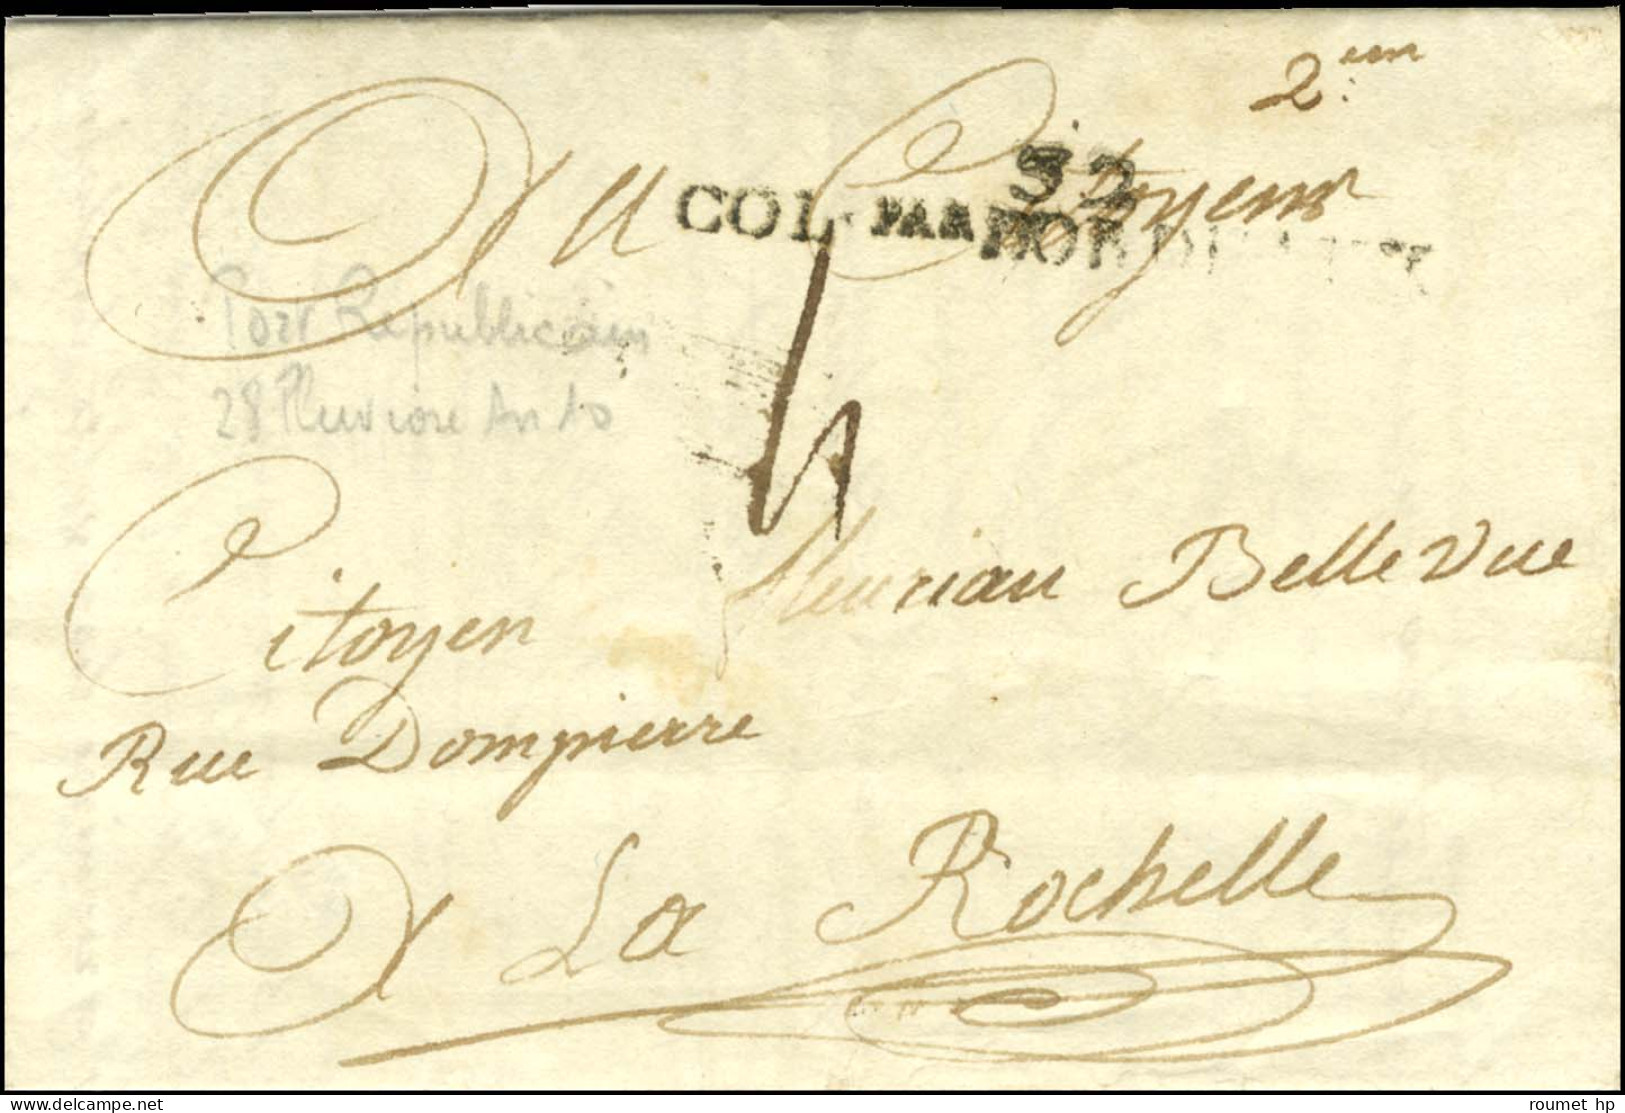 2em
Au Citoyen
32
COL. PAR BORDEAUX
Port Républicain
28 Pluviose An 10
4
Citoyen fleuriau BelleVue
Rue Dompierre
A La Rochelle
roumet hp